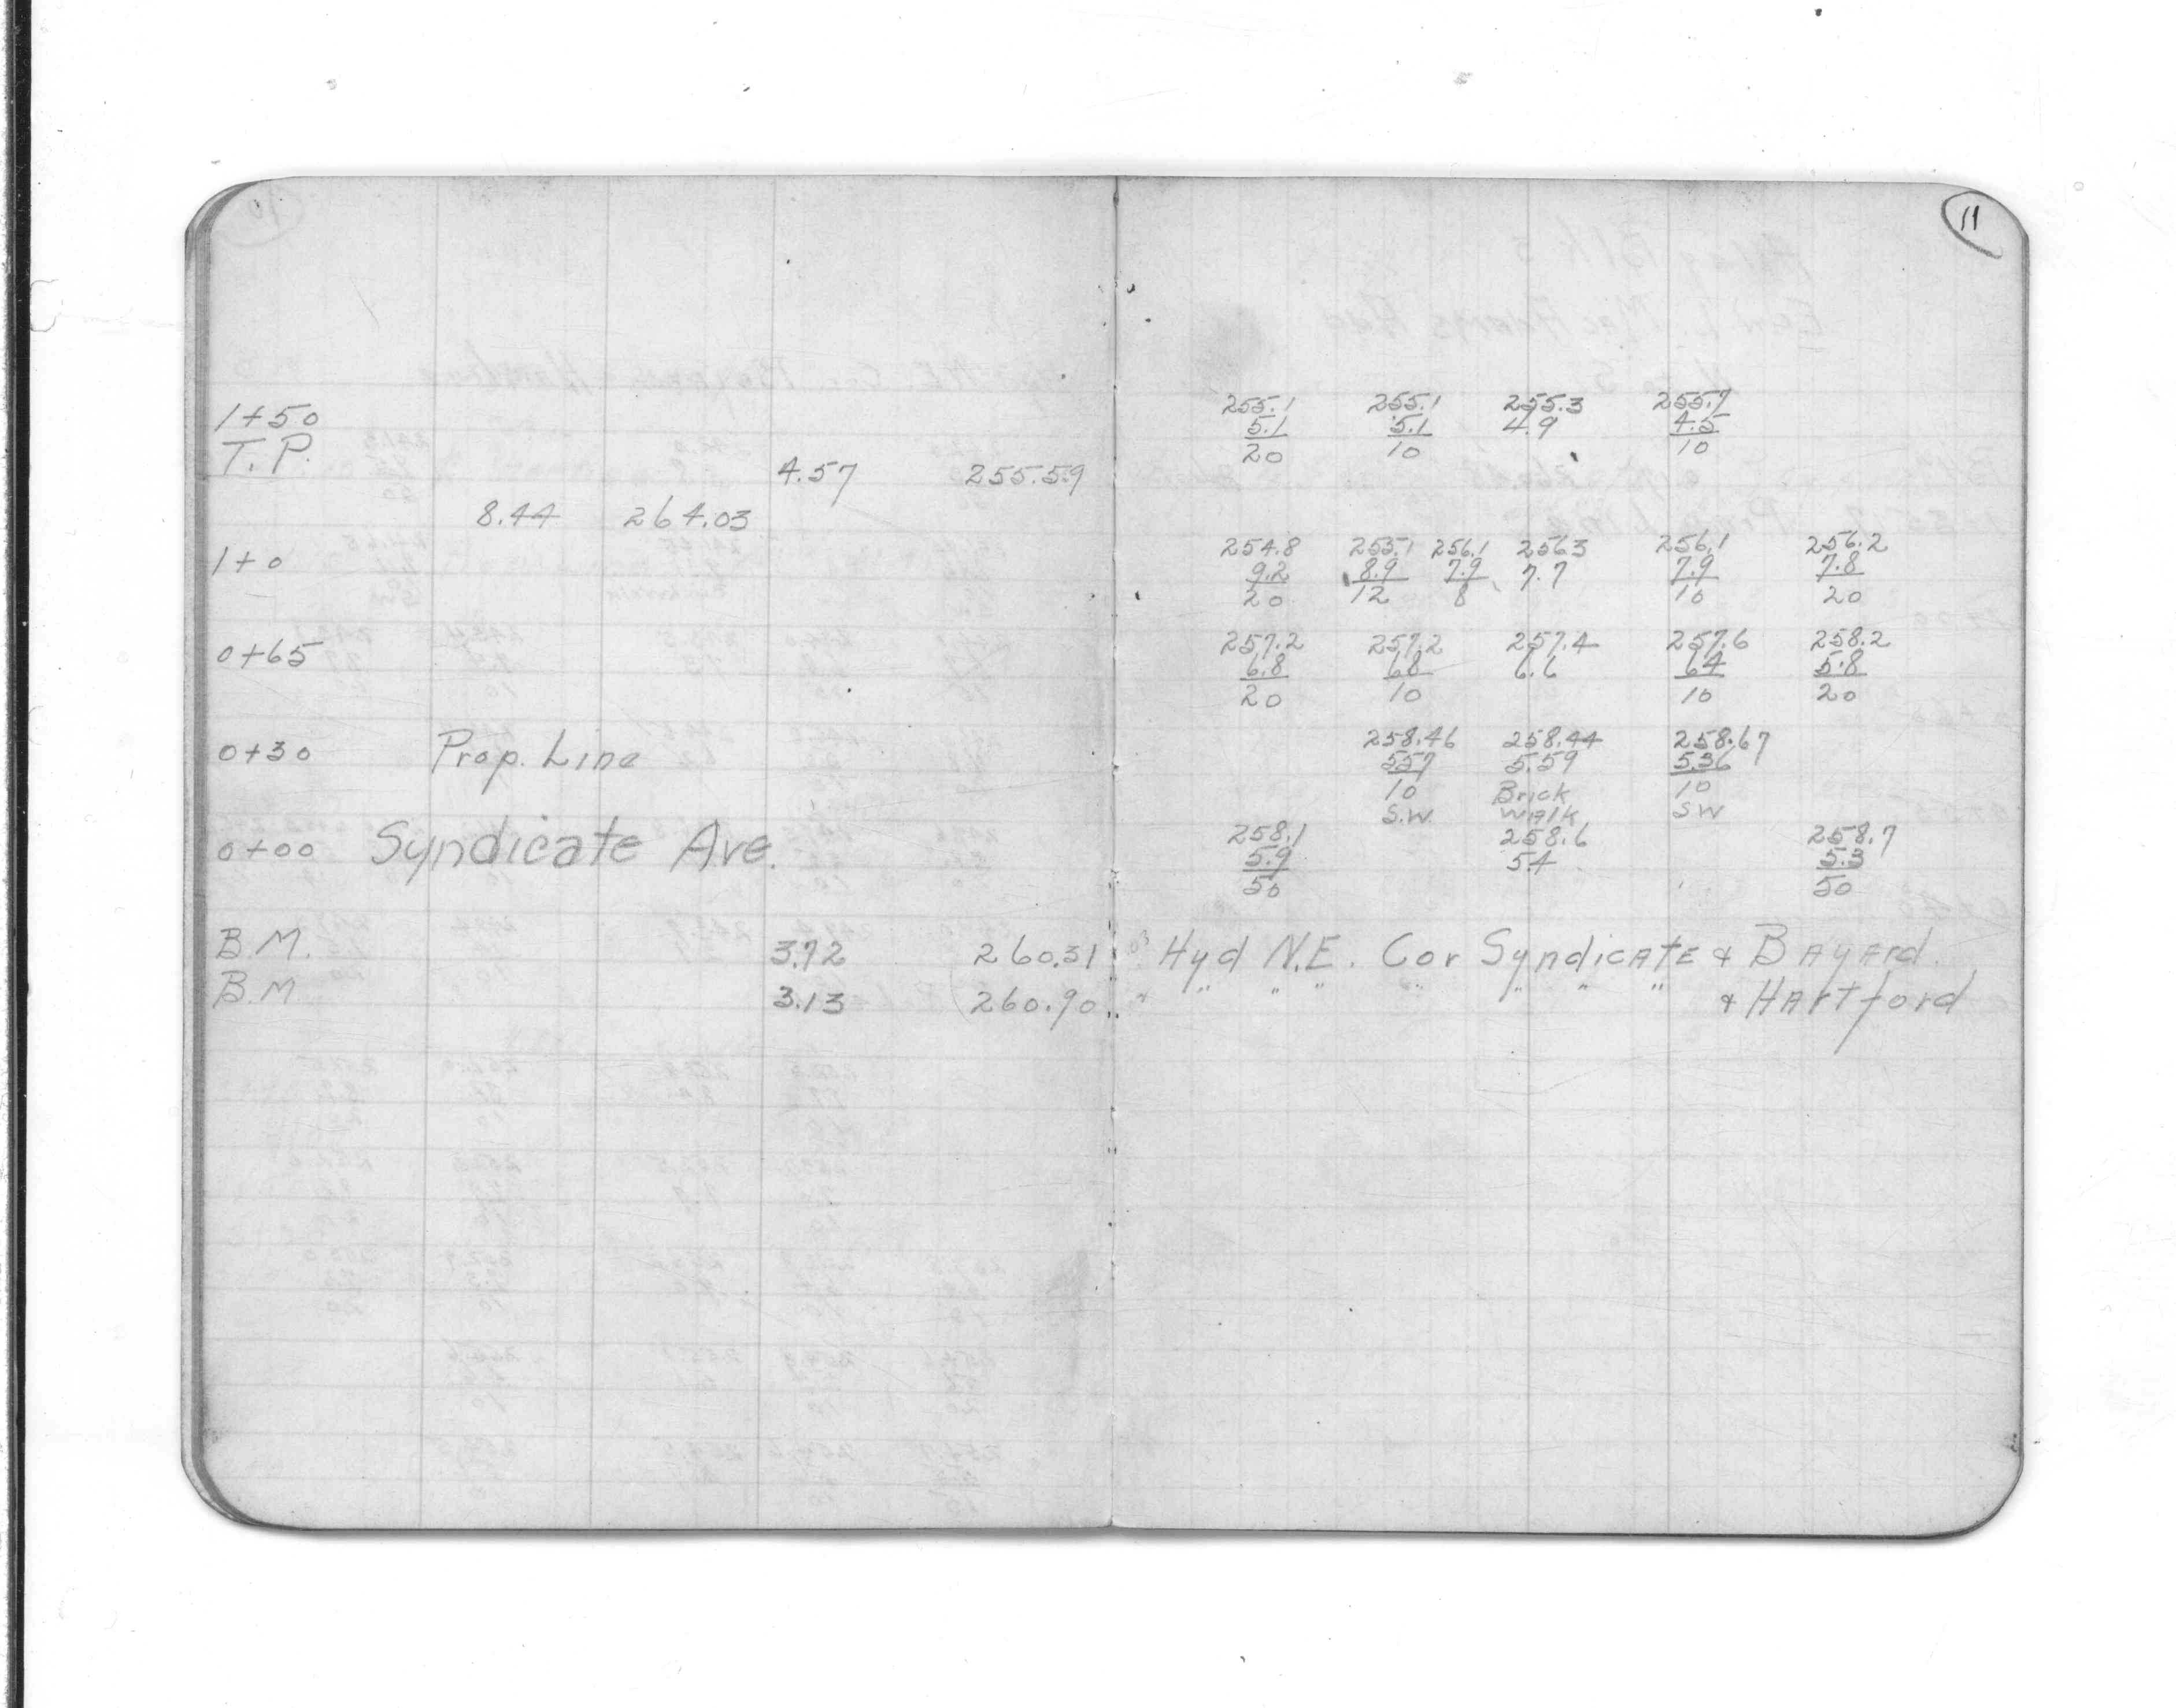 11
1+50 255.1 255.1 255.3 255.7
T.P. 5.1 5.1 4.9 4.5
4.57 255.59 20 10 10
8.44 264.03
1+0 254.8 255.1 256.1 256.3 256.1 256.2
9.2 8.9 7.9 7.7 7.9 7.8
20 12 8 10 20
0+65 257.2 257.2 257.4 257.6 258.2
6.8 6.8 6.6 6.4 5.8
20 10 10 20
0+30 Prop. Line 258.46 258.44 258.67
5.57 5.59 5.36
10 Brick 10
S.W. Walk SW
0+00 Syndicate Ave. 258.1 258.6 258.7
5.9 5.4 5.3
50 50
B.M. 3.72 260.31 Hyd N.E. Cor Syndicate & Bayard.
B.M 3.13 260.90 " " " " " " " " & Hartford